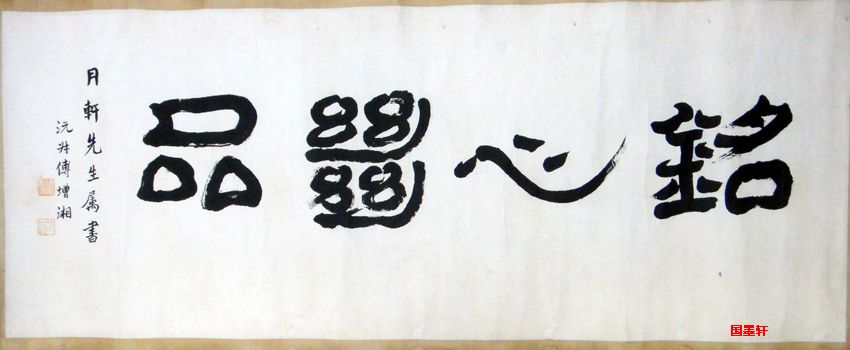 銘心絕品
月軒先生属書
沅叔傅增湘
国墨轩